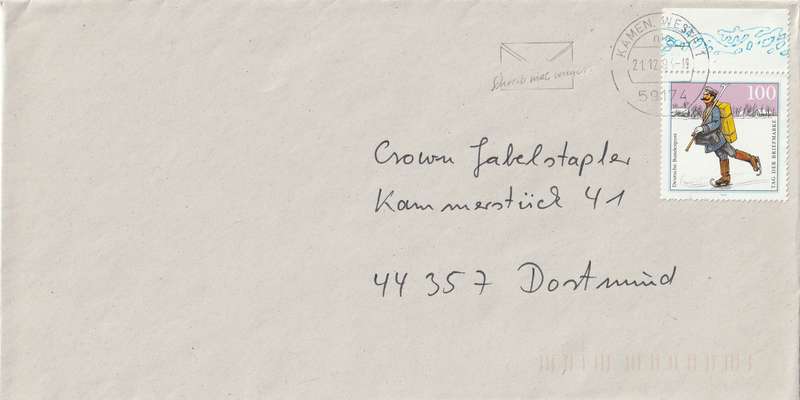 Schreib mal wieder
KAMEN, WESTF 1
21.12.94-19
59174
100
Deutsche Bundespost
TAG DER BRIEFMARKE
Crown Gabelstapler
Kammerstück 41
44357 Dortmund